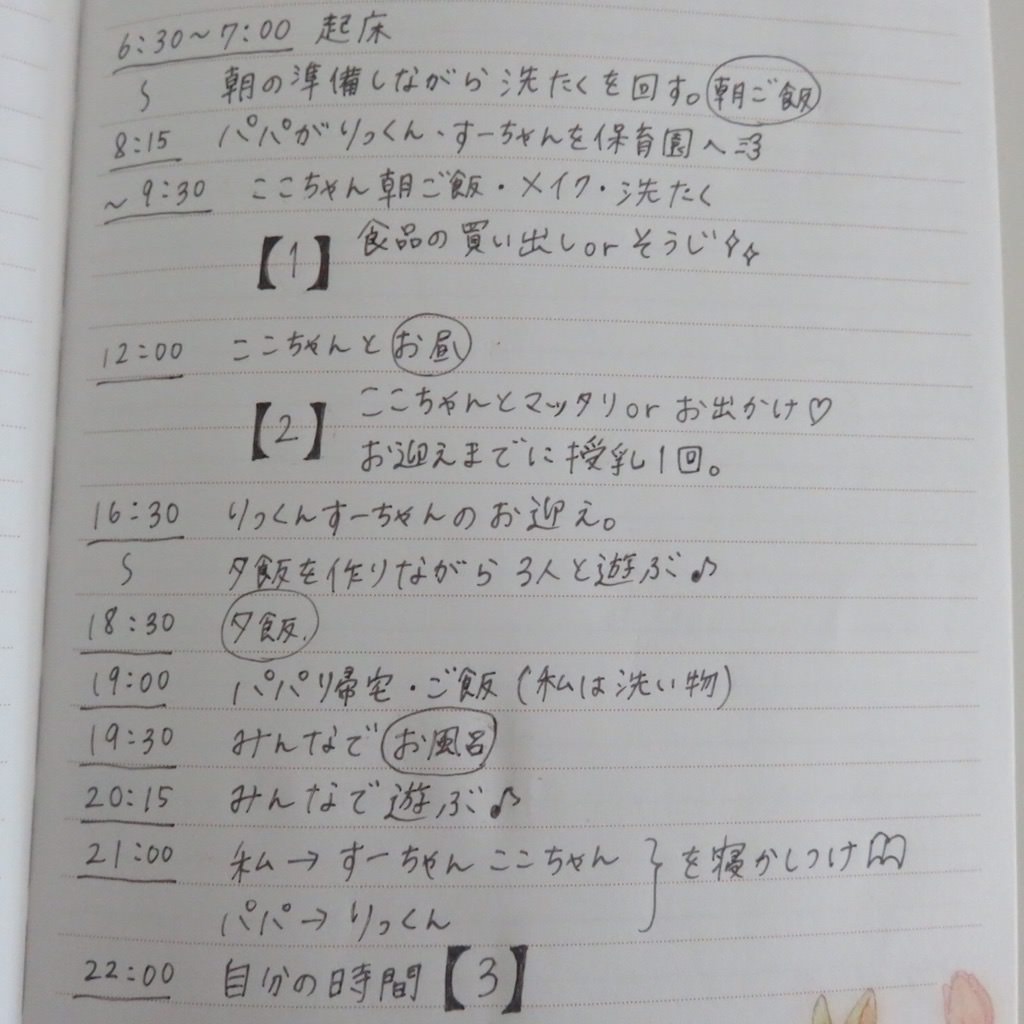 6:30～7:00 起床
∫ 朝の準備しながら洗たくを回す。朝ご飯
8:15 パパがりっくん・すーちゃんを保育園へ
～9:30 ここちゃん朝ご飯・メイク・洗たく
【1】 食品の買い出しorそうじ
12:00 ここちゃんとお昼
【2】 ここちゃんとマッタリorお出かけ♡
お迎えまでに授乳1回。
16:30 りっくんすーちゃんのお迎え。
∫ 夕飯を作りながら3人と遊ぶ♪
18:30 夕飯.
19:00 パパ帰宅・ご飯(私は洗い物)
19:30 みんなでお風呂
20:15 みんなで遊ぶ♪
21:00 私→すーちゃん ここちゃん } を寝かしつけ
パパ→りっくん
22:00 自分の時間【3】